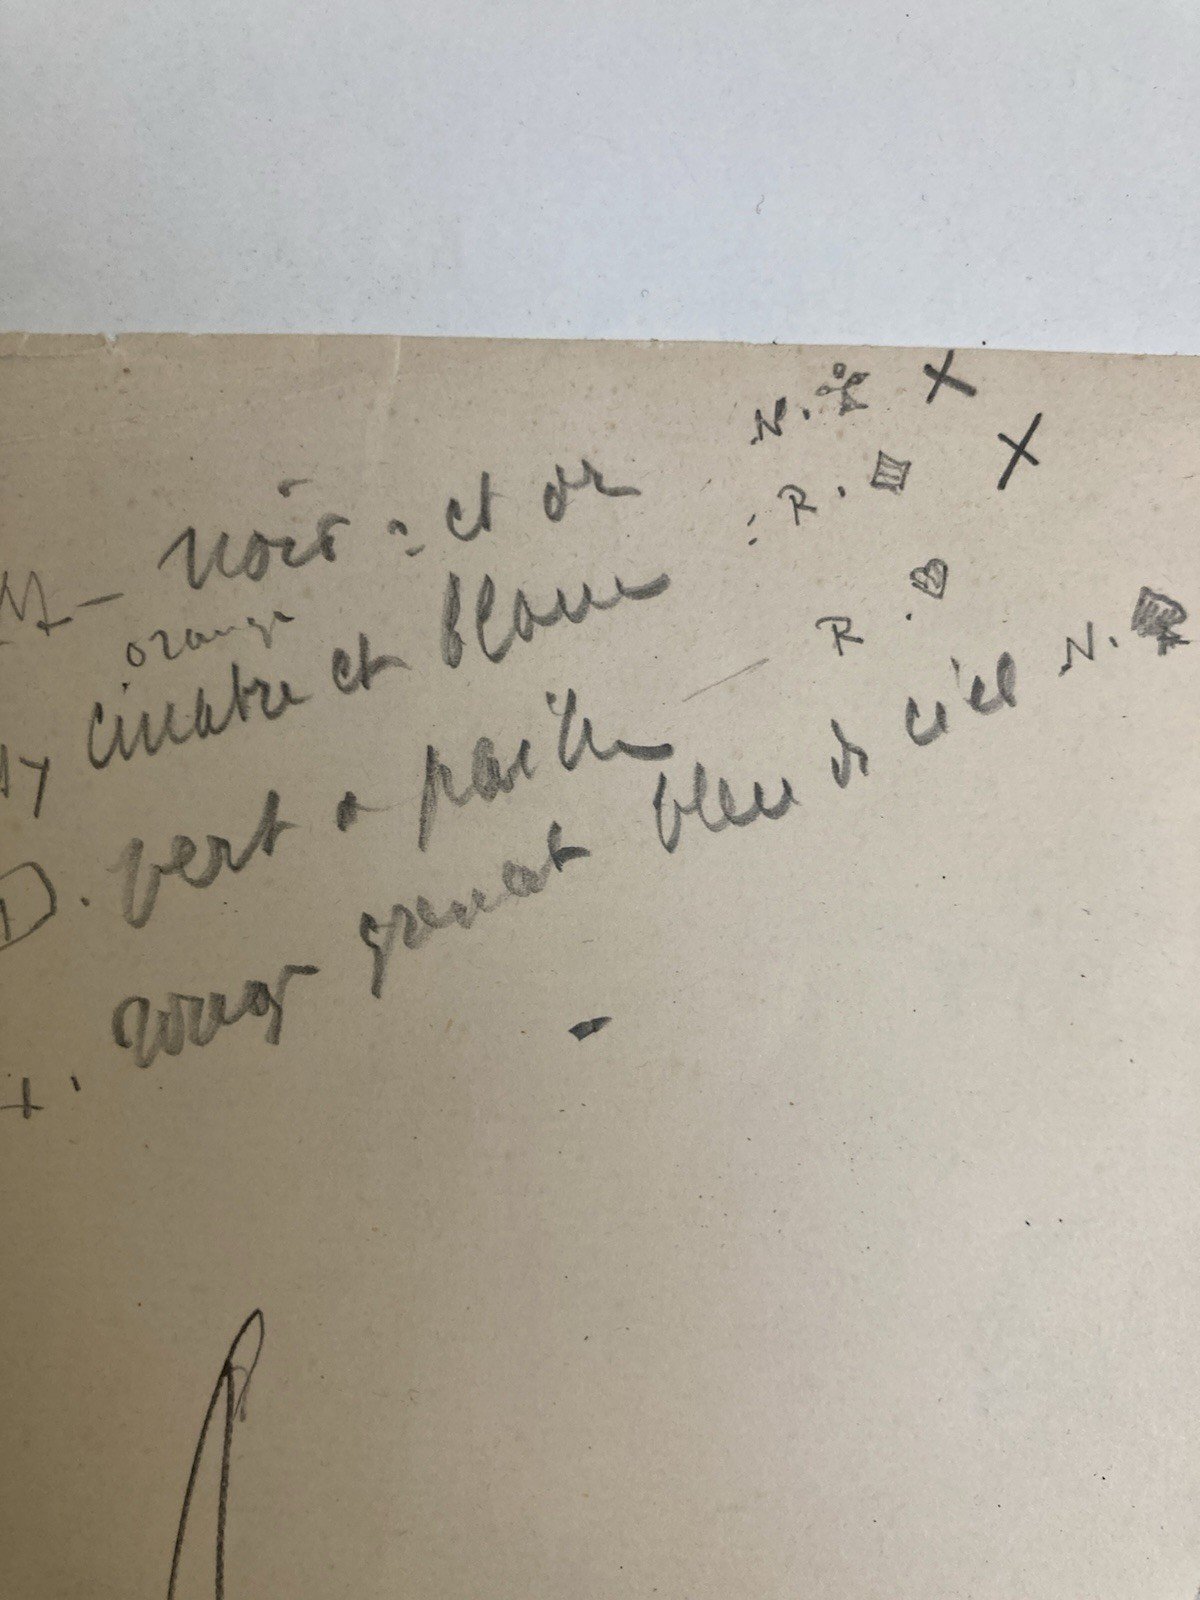 noir - et or N. X
orange
et blanc : R. X
vert paille — R.
rouge grenat bleu de ciel N.